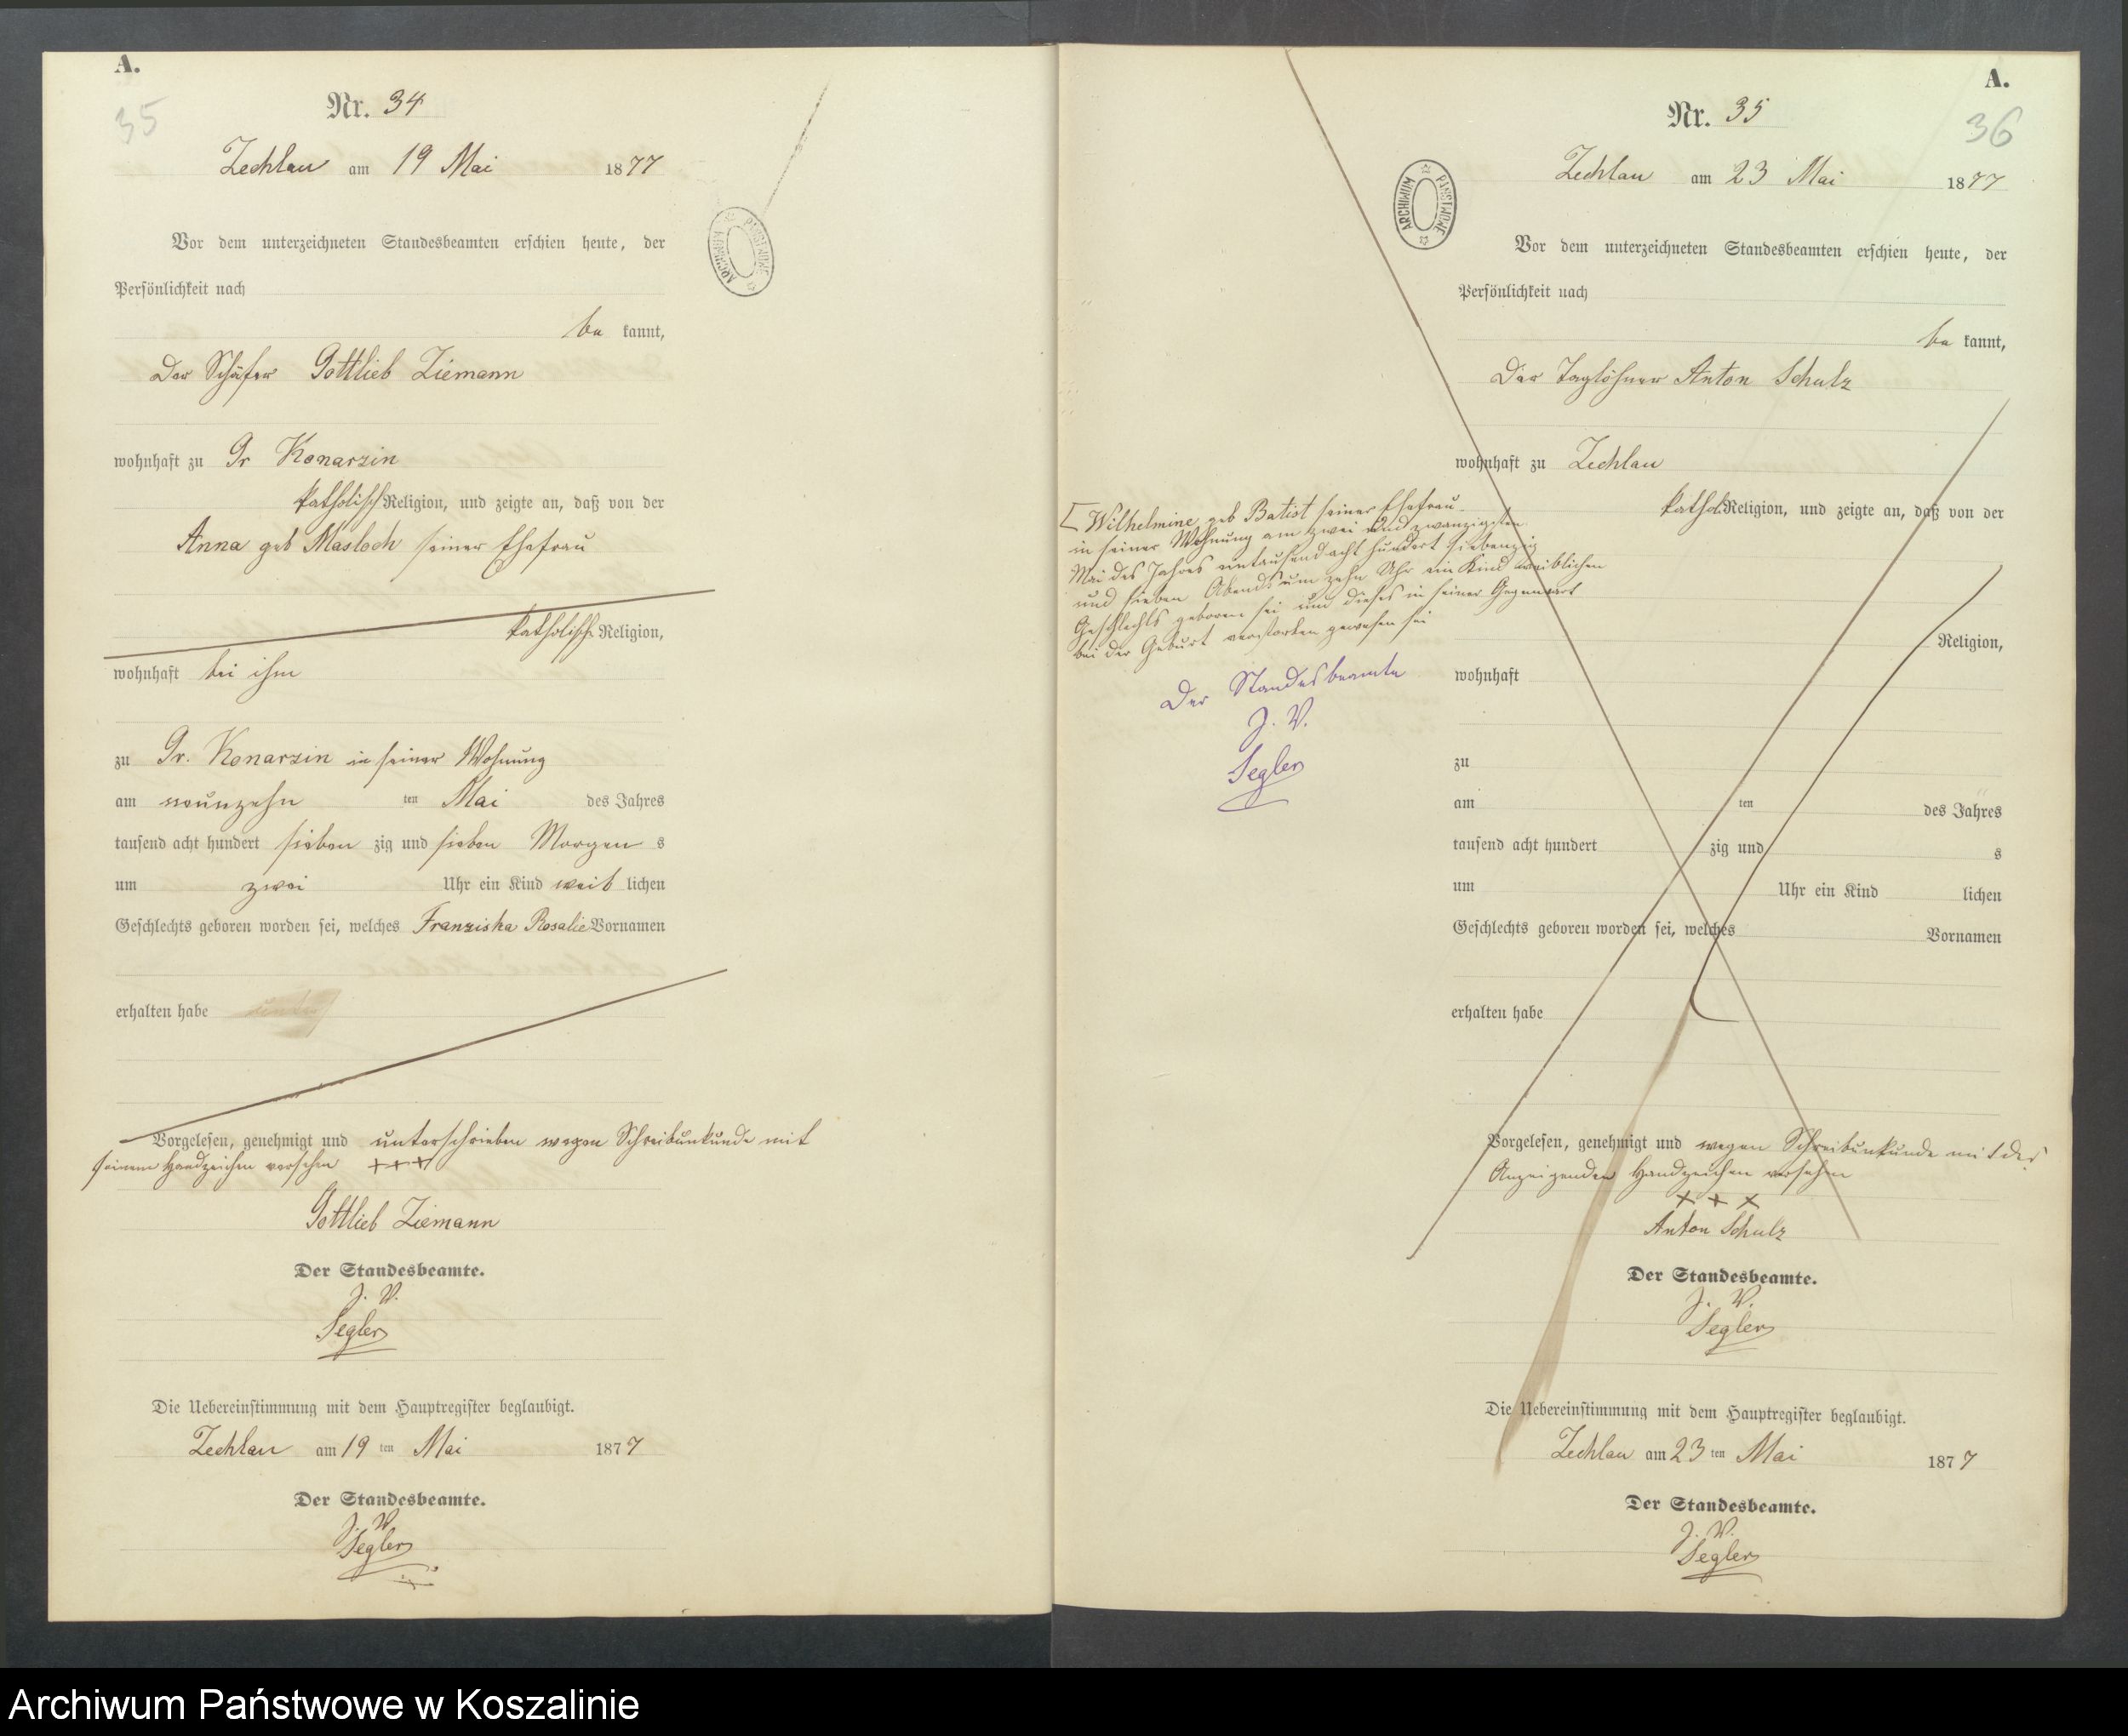 A.
35
Nr. 34
Zechlau am 19 Mai 1877
ARCHIWUM PAŃSTWOWE
Vor dem unterzeichneten Standesbeamten erschien heute, der
Persönlichkeit nach
be kannt,
Der Schäfer Gottlieb Ziemann
wohnhaft zu Gr Konarzin
katholisch Religion, und zeigte an, daß von der
Anna geb Masloch seiner Ehefrau
katholisch Religion,
wohnhaft bei ihm
zu Gr. Konarzin in seiner Wohnung
am neunzehn ten Mai des Jahres
tausend acht hundert sieben zig und sieben Morgen s
um zwei Uhr ein Kind weib lichen
Geschlechts geboren worden sei, welches Franziska Rosalie Vornamen
erhalten habe
Vorgelesen, genehmigt und unterschrieben wegen Schreibunkunde mit
seinem Handzeichen versehen +++
Gottlieb Ziemann
Der Standesbeamte.
J. V.
Segler
Die Uebereinstimmung mit dem Hauptregister beglaubigt.
Zechlau am 19 ten Mai 1877
Der Standesbeamte.
J. V.
Segler
A.
36
Nr. 35
Zechlau am 23 Mai 1877
ARCHIWUM PAŃSTWOWE
Vor dem unterzeichneten Standesbeamten erschien heute, der
Persönlichkeit nach
be kannt,
Der Taglöhner Anton Schulz
wohnhaft zu Zechlau
kathol. Religion, und zeigte an, daß von der
[Wilhelmine geb Batist seiner Ehefrau
in seiner Wohnung am zwei und zwanzigsten
Mai des Jahres eintausend acht hundert siebenzig
und sieben Abends um zehn Uhr ein Kind weiblichen
Geschlechts geboren sei und dieses in seiner Gegenwart
bei der Geburt verstorben gewesen sei
Der Standesbeamte
J. V.
Segler
Religion,
wohnhaft
zu
am ten des Jahres
tausend acht hundert zig und s
um Uhr ein Kind lichen
Geschlechts geboren worden sei, welches Vornamen
erhalten habe
Vorgelesen, genehmigt und wegen Schreibunkunde mit des
Anzeigenden Handzeichen versehen
+ + +
Anton Schulz
Der Standesbeamte.
J. V.
Segler
Die Uebereinstimmung mit dem Hauptregister beglaubigt.
Zechlau am 23 ten Mai 1877
Der Standesbeamte.
J. V.
Segler
Archiwum Państwowe w Koszalinie